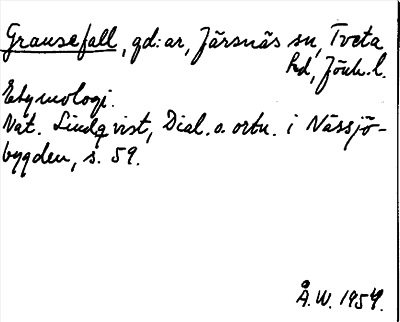 Grausefall, gd:ar, Järsnäs sn, Tveta
hd, Jönk.l.
Etymologi.
Nat. Lindqvist, Dial. o. ortn. i Nässjö-
bygden, s. 59.
Å.W. 1954.